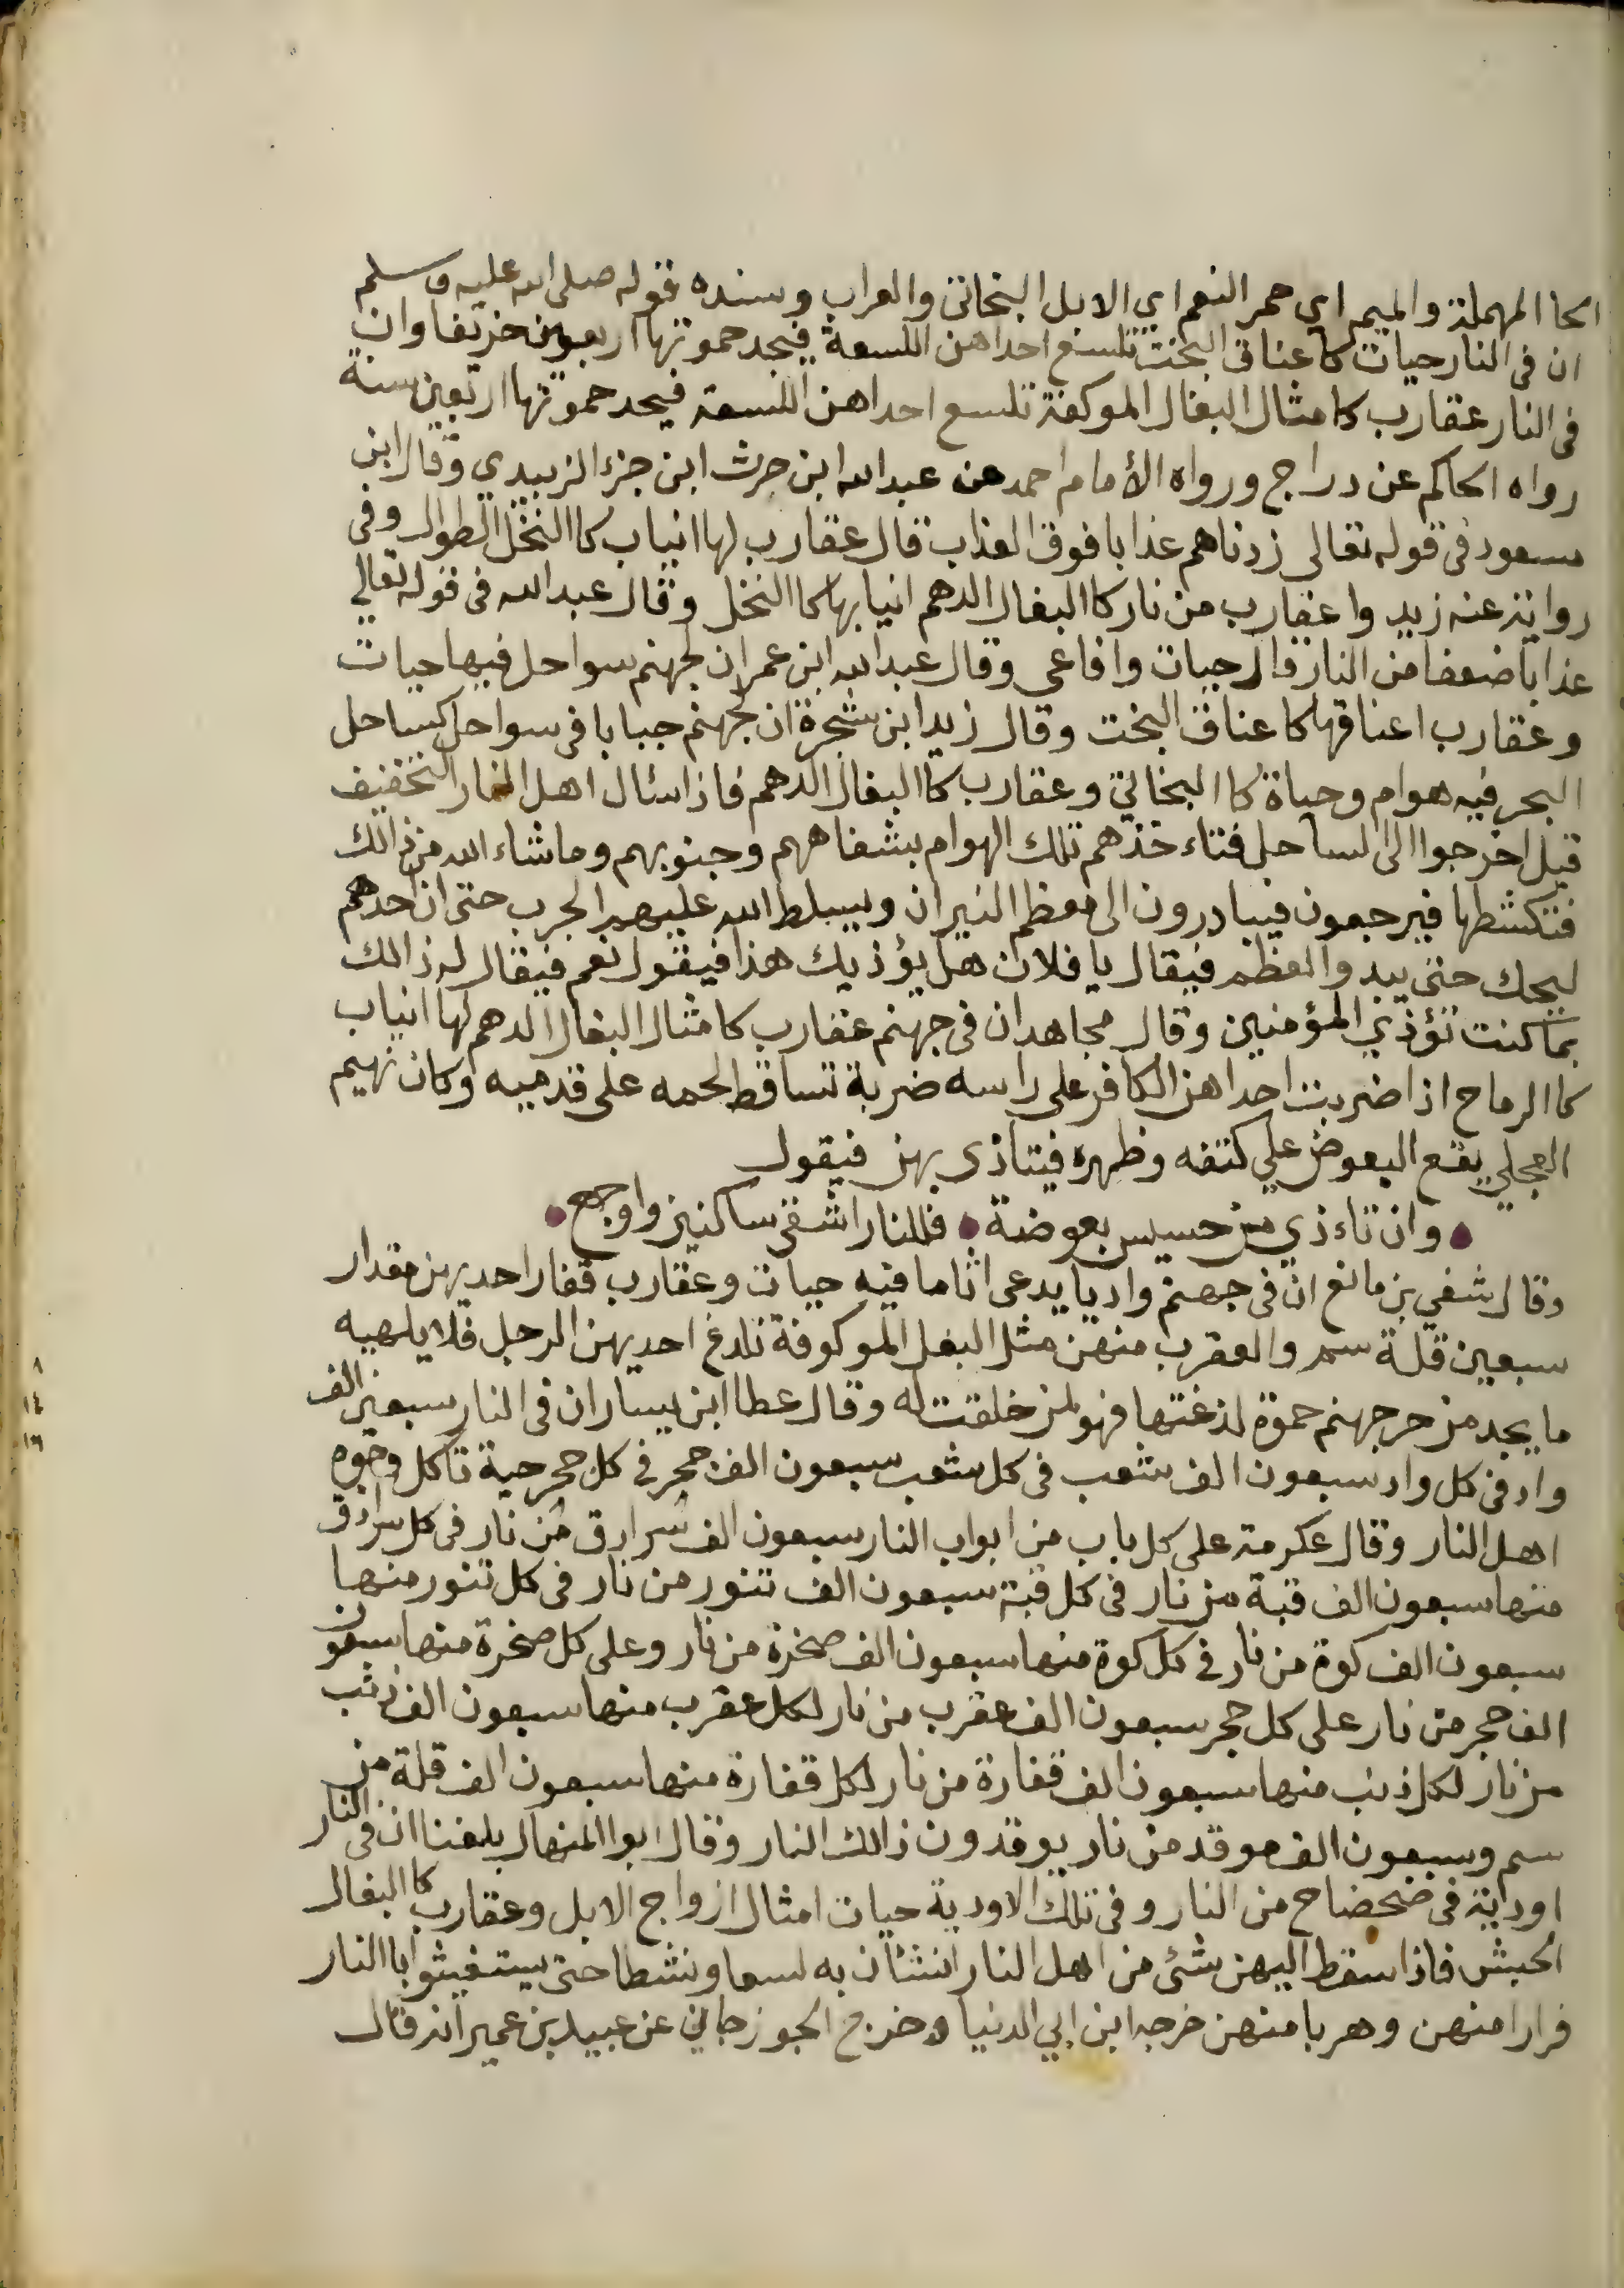 الحا المهملة والميم اي حمر النعم اي الابل البخاتي والعراب وسنده قوله صلى الله عليه وسلم
ان في النار حيات كاعناق البخت تلسع احداهن اللسعة فيجد حموتها اربعين خريفا وان
في النار عقارب كامثال البغال الموكفة تلسع احداهن اللسعة فيجد حموتها اربعين سنة
رواه الحاكم عن دراج ورواه الأمام احمد عن عبدالله ابن حرث ابن جزء الزبيدي وقال ابن
مسعود في قوله تعالى زدناهم عذابا فوق العذاب قال عقارب لها انياب كا النخل الطوال وفي
رواية عنه زيدوا عقارب من نار كا البغال الدهم انيابها كا النخل وقال عبدالله في قوله تعالي
عذابا ضعفا من النار قال حيات وافاعي وقال عبدالله ابن عمر ان لجهنم سواحل فيها حيات
وعقارب اعناقها كاعناق البخت وقال زيد ابن شجرة ان لجهنم جبابا في سواحل كساحل
البحر فيه هوام وحياة كا البخاتي وعقارب كا البغال الدهم فاذا سئال اهل النار التخفيف
قيل اخرجوا الى الساحل فتاءخذهم تلك الهوام بشفاههم وجنوبهم وما شاء الله من ذالك
فتكشطها فيرجعون فيبادرون الى معظم النيران ويسلط الله عليهم الجرب حتى ان احدهم
ليحك حتى يبدوا العظم فيقال يا فلان هل يؤذيك هذا فيقول نعم فيقال له ذالك
بما كنت تؤذي المؤمنين وقال مجاهد ان في جهنم عقارب كامثال البغال الدهم لها انياب
كا الرماح اذا ضربت احداهن الكافر على راسه ضربة تساقط لحمه على قدميه وكان نهيم
العجلي يقع البعوض علي كتفه وظهره فيتاذى بهن فيقول
وان تاءذي من حسيس بعوضة • فللنار اشقى ساكنين واوجع •
وقال شفي بن مانع ان في جهنم واديا يدعى اثاما فيه حيات وعقارب فقار احديهن مقدار
سبعين قلة سم والعقرب منهن مثل البغل الموكوفة تلدغ احديهن الرجل فلا يلهيه
ما يجد من حر جهنم حموة لدغتها فهو لمن خلقت له وقال عطا ابن يسار ان في النار سبعين الف
واد في كل واد سبعون الف شعب في كل شعب سبعون الف جحر في كل جحر حية تاكل وجوه
اهل النار وقال عكرمة على كل باب من ابواب النار سبعون الف سرادق من نار في كل سرادق
منها سبعون الف قبة من نار في كل قبة سبعون الف تنور من نار في كل تنور منها
سبعون الف كوة من نار في كل كوة منها سبعون الف صخرة من نار وعلى كل صخرة منها سبعون
الف حجر من نار على كل حجر سبعون الف عقرب من نار لكل عقرب منها سبعون الف ذنب
من نار لكل ذنب منها سبعون الف فقارة من نار لكل فقارة منها سبعون الف قلة من
سم وسبعون الف موقد من نار يوقدون ذالك النار وقال ابوا المنهال بلغنا ان في النار
اوداية في ضحضاح من النار وفي تلك الاودية حيات امثال ازواج الابل وعقارب كا البغال
الحبش فاذا سقط اليهن شئ من اهل النار انشئان به لسعا ونشطا حتى يستغيثوا با النار
فرارا منهن وهربا منهن خرجه ابن ابي الدنيا وخرج الجوزجاني عن عبيد بن عمير انه قال
٨
١٤